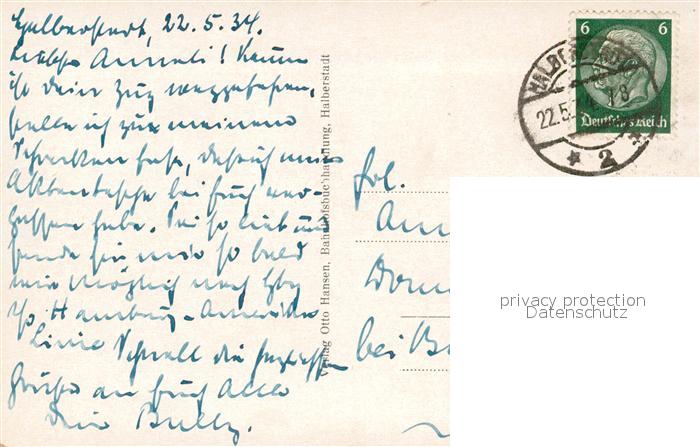 Halberstadt, 22.5.34.
Liebste Anneli! Kaum
ist dein Zug weggefahren,
stelle ich zu meinem
Schrecken fest, daß ich meine
Aktentasche bei Euch ver-
gessen habe. Sei so lieb und
sende sie mir so bald
wie möglich nach Hbg
p/a Hamburg-Amerika
Linie Schnell die herzlichsten
Grüße an Euch alle
Dein Bully.
Verlag Otto Hansen, Bahnhofsbuchhandlung, Halberstadt
6 6
Deutsches Reich
HALBERSTADT
22.5.34. 18
* 2
Frl.
Ann
Dom
bei B
privacy protection
Datenschutz